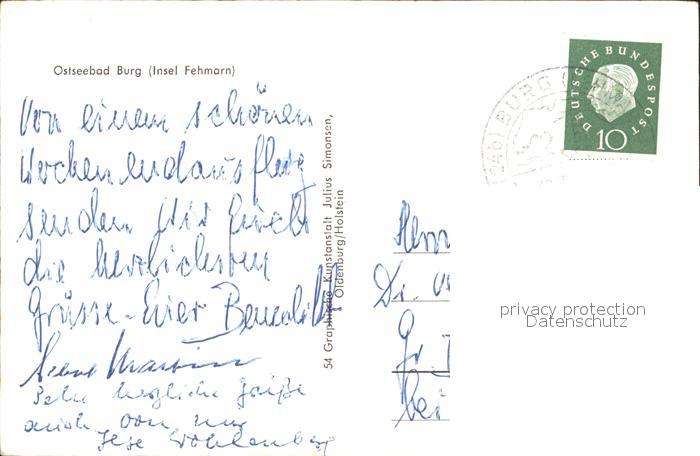 Ostseebad Burg (Insel Fehmarn)
Von einem schönen
Wochenendausflug
senden
die herzlichsten
Grüsse - Euer Benedikt
Sehr herzliche Grüße
auch von mir
Ilse
54 Graphische Kunstanstalt Julius Simonsen,
Oldenburg/Holstein
(24b) BURG
DEUTSCHE BUNDESPOST
10
Herrn
Dr.
Gr.
bei
privacy protection
Datenschutz